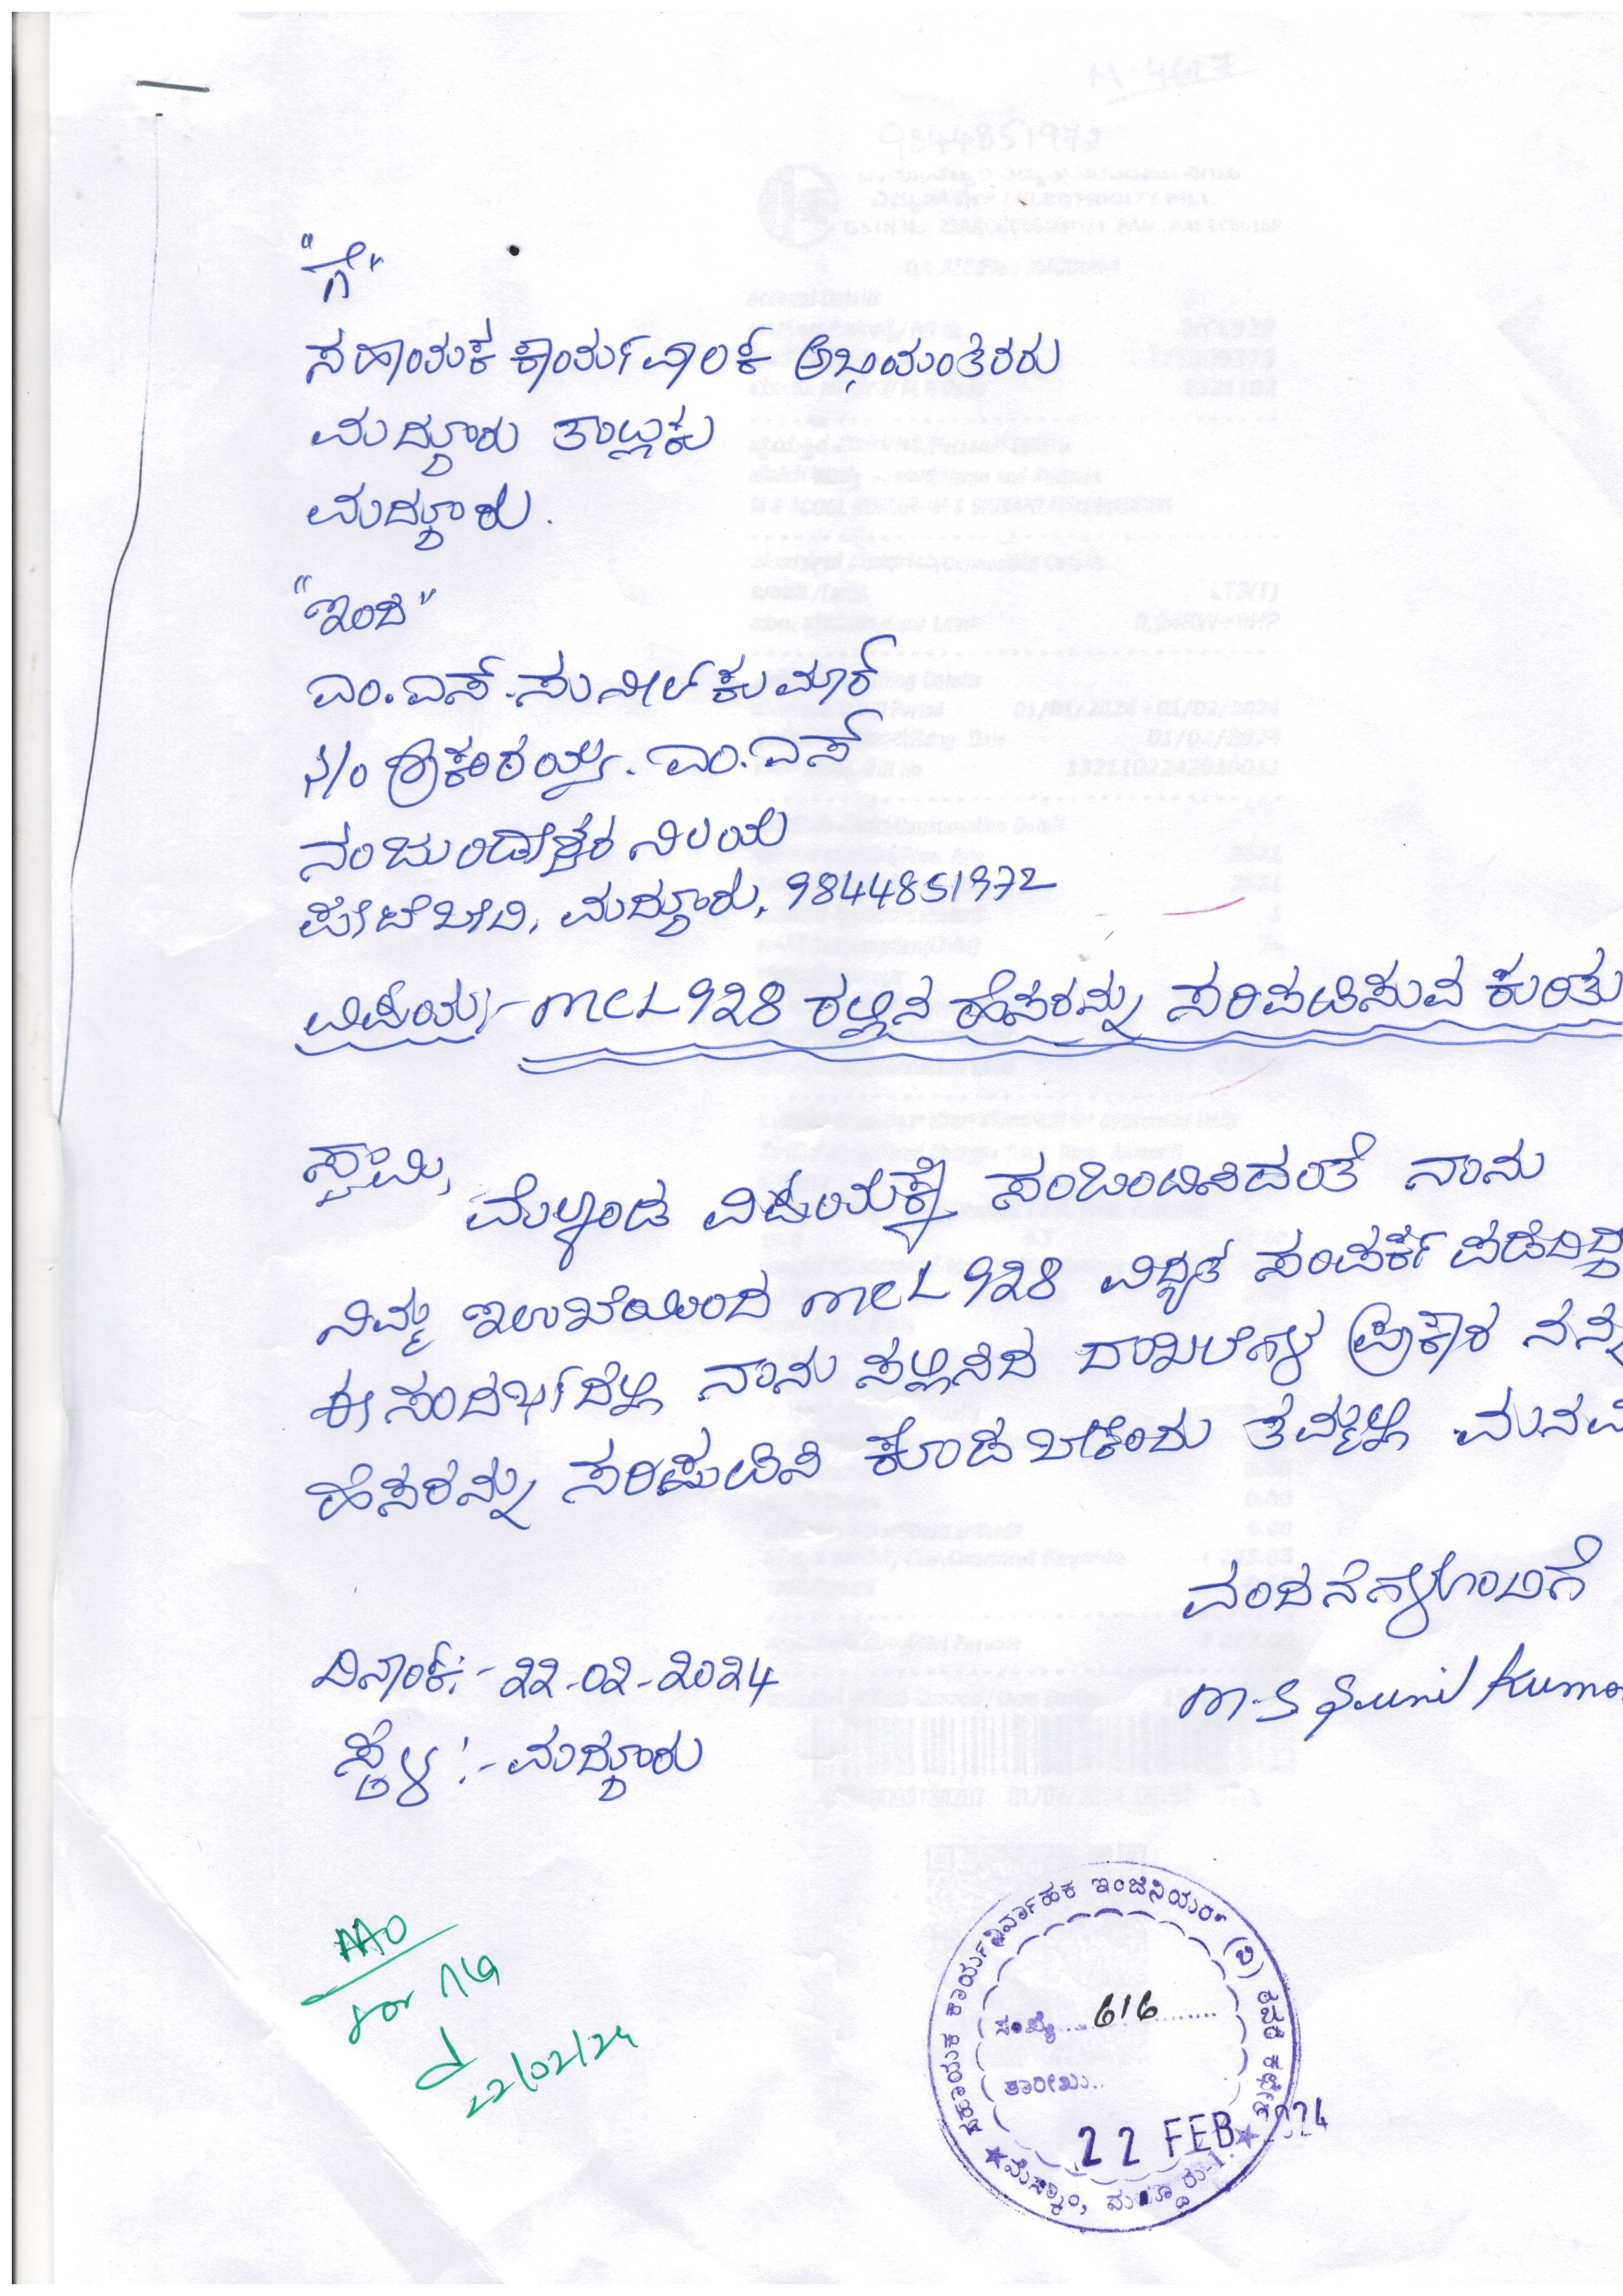 "ಗೆ"
ಸಹಾಯಕ ಕಾರ್ಯಪಾಲಕ ಅಭಿಯಂತರರು
ಮದ್ದೂರು ತಾಲ್ಲೂಕು
ಮದ್ದೂರು.
"ಇಂದ"
ಎಂ.ಎಸ್.ಸುನೀಲ್ ಕುಮಾರ್
S/o ಶ್ರೀಕಂಠಯ್ಯ. ಎಂ.ಎಸ್
ನಂಜುಂಡೇಶ್ವರ ನಿಲಯ
ಪೇಟೆಬೀದಿ, ಮದ್ದೂರು, 9844851972
ವಿಷಯ:- MCL 928 ರಲ್ಲಿನ ಹೆಸರನ್ನು ಸರಿಪಡಿಸುವ ಕುರಿತು
ಸ್ವಾಮಿ,
ಮೇಲ್ಕಂಡ ವಿಷಯಕ್ಕೆ ಸಂಬಂಧಿಸಿದಂತೆ ನಾನು
ನಿಮ್ಮ ಇಲಾಖೆಯಿಂದ MCL 928 ವಿದ್ಯುತ್ ಸಂಪರ್ಕ ಪಡೆದಿದ್ದು
ಈ ಸಂದರ್ಭದಲ್ಲಿ ನಾನು ಸಲ್ಲಿಸಿದ ದಾಖಲೆಗಳ ಪ್ರಕಾರ ನನ್ನ
ಹೆಸರನ್ನು ಸರಿಪಡಿಸಿ ಕೊಡಬೇಕೆಂದು ತಮ್ಮಲ್ಲಿ ಮನವಿ
ವಂದನೆಗಳೊಂದಿಗೆ
ದಿನಾಂಕ:- 22-02-2024
M-S Sunil Kumar
ಸ್ಥಳ :- ಮದ್ದೂರು
AAO
for n/a
22/02/24
ಸಹಾಯಕ ಕಾರ್ಯನಿರ್ವಾಹಕ ಇಂಜಿನಿಯರ್ (ವಿ) ಕಚೇರಿ
ಸಂಖ್ಯೆ.... 616 ........
ತಾರೀಖು..
22 FEB 2024
ಮೆಸ್ಕಾಂ, ಮದ್ದೂರು-1.